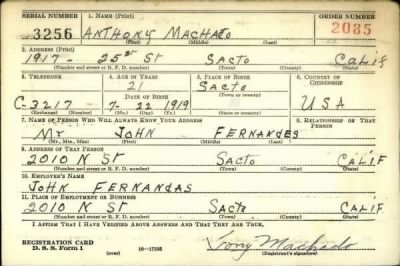 SERIAL NUMBER 1. NAME (Print) ORDER NUMBER
3256 ANTHONY MACHADO 2085
(First) (Middle) (Last)
2. ADDRESS (Print)
1917 - 25ST ST SACTO CALIF
(Number and street or R. F. D. number) (Town) (County) (State)
3. TELEPHONE 4. AGE IN YEARS 5. PLACE OF BIRTH 6. COUNTRY OF CITIZENSHIP
21 SACTO
DATE OF BIRTH (Town or county)
C-3217 7-22 1919 USA
(Exchange) (Number) (Mo.) (Day) (Yr.) (State or country)
7. NAME OF PERSON WHO WILL ALWAYS KNOW YOUR ADDRESS 8. RELATIONSHIP OF THAT PERSON
Mr JOHN FERNANDES
(Mr., Mrs., Miss) (First) (Middle) (Last)
9. ADDRESS OF THAT PERSON
2010 N ST SACTO CALIF
(Number and street or R. F. D. number) (Town) (County) (State)
10. EMPLOYER'S NAME
JOHN FERNANDAS
11. PLACE OF EMPLOYMENT OR BUSINESS
2010 N ST SACTO CALIF
(Number and street or R. F. D. number) (Town) (County) (State)
I AFFIRM THAT I HAVE VERIFIED ABOVE ANSWERS AND THAT THEY ARE TRUE.
REGISTRATION CARD Tony Machado
D. S. S. Form 1 (over) 16-17105 (Registrant's signature)